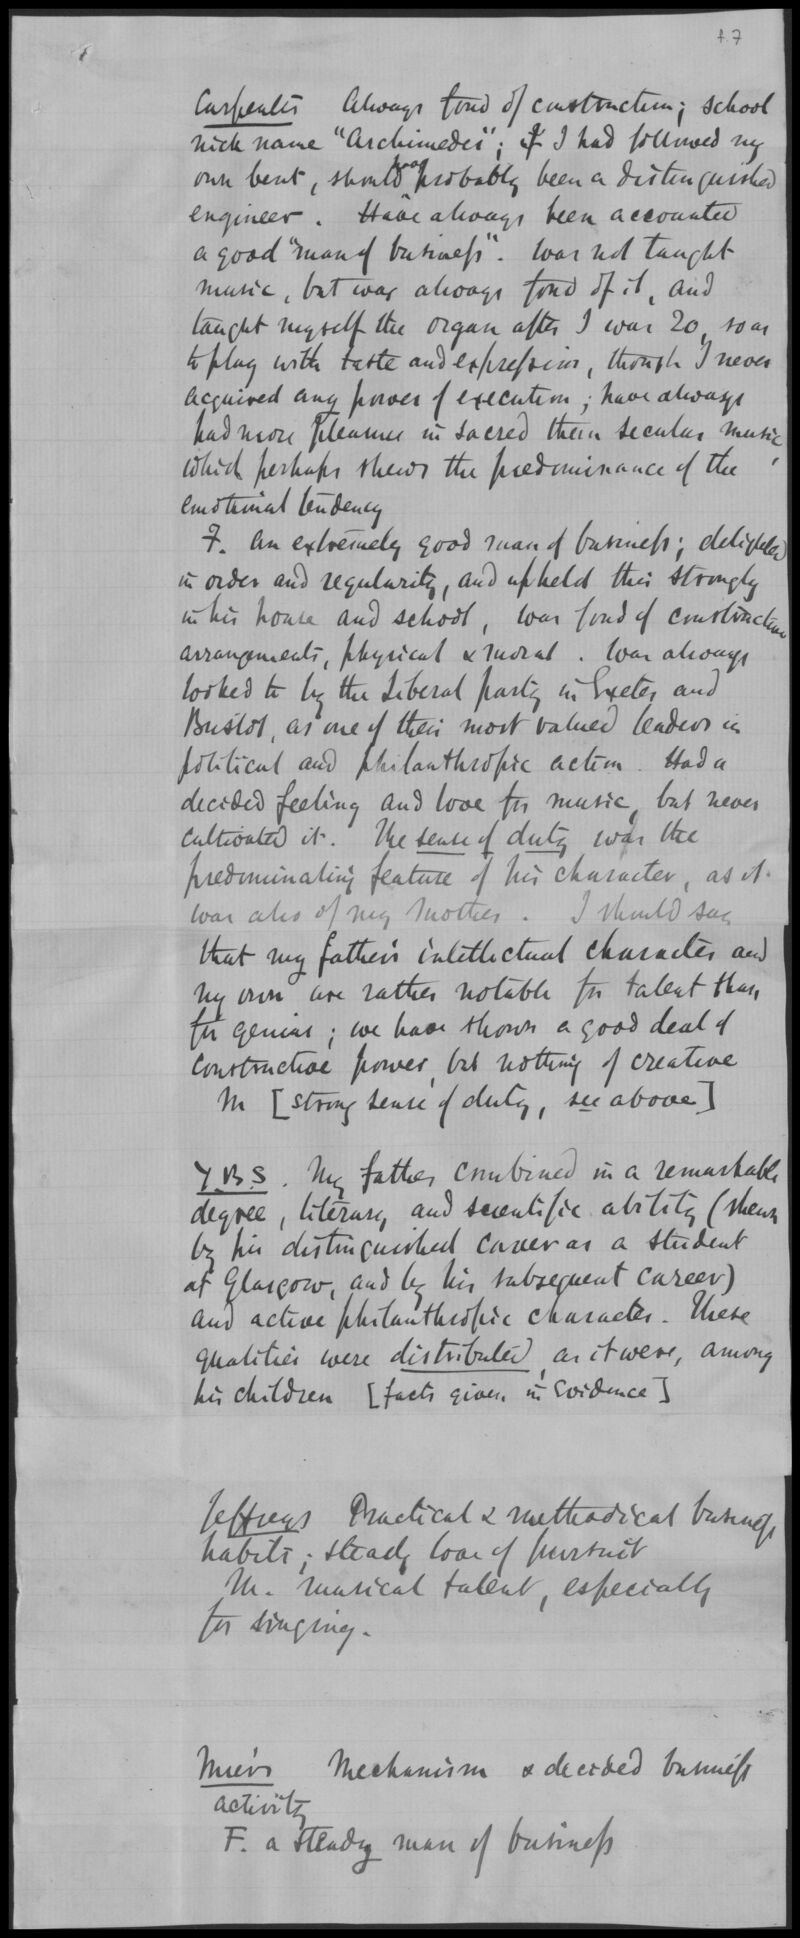 f.7
Carpenter Always fond of construction; school
nick name "Archimedes"; if I had followed my
own bent, should have probably been a distinguished
engineer. Have always been accounted
a good "man of business". Was not taught
music, but was always fond of it, and
taught myself the organ after I was 20, so as
to play with taste and expression, though I never
acquired any power of execution; have always
had more pleasure in sacred than secular music,
which perhaps shews the predominance of the
emotional tendency
F. An extremely good man of business; delighted
in order and regularity, and upheld this strongly
in his house and school, was fond of construction
arrangements, physical & moral. Was always
looked to by the Liberal party in Exeter and
Bristol, as one of their most valued leaders in
political and philanthropic action. Had a
decided feeling and love for music, but never
cultivated it. The sense of duty was the
predominating feature of his character, as it
was also of my Mother. I should say
that my father's intellectual character and
my own are rather notable for talent than
for genius; we have shown a good deal of
constructive power, but nothing of creative
M [strong sense of duty, see above]
Y.B.S. My father combined in a remarkable
degree, literary and scientific ability (shewn
by his distinguished career as a student
at Glasgow, and by his subsequent career)
and active philanthropic character. These
qualities were distributed, as it were, among
his children [facts given in evidence]
Jeffreys Practical & methodical business
habits; steady love of pursuit
M. musical talent, especially
for singing.
Miers Mechanism & decided business
activity
F. a steady man of business